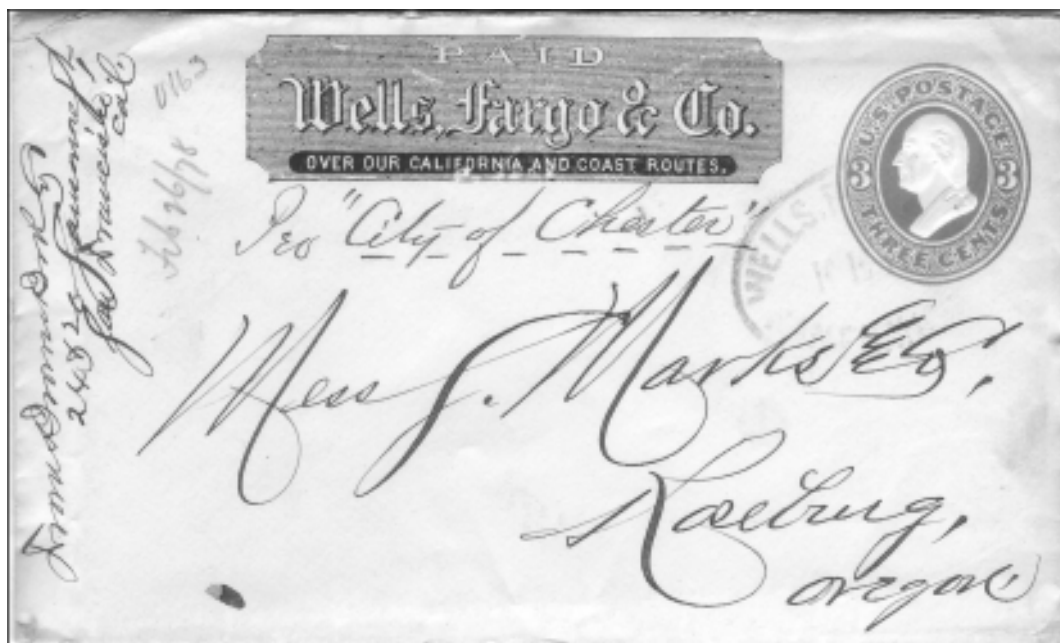 PAID
Wells, Fargo & Co.
OVER OUR CALIFORNIA AND COAST ROUTES.
U.S. POSTAGE
3 3
THREE CENTS
WELLS, F
Pro "City of Chester"
Mess S. Marks & Co,
Roseburg,
Oregon
24 & 26 Sansome St
San Francisco
Cal
Feb 26/78